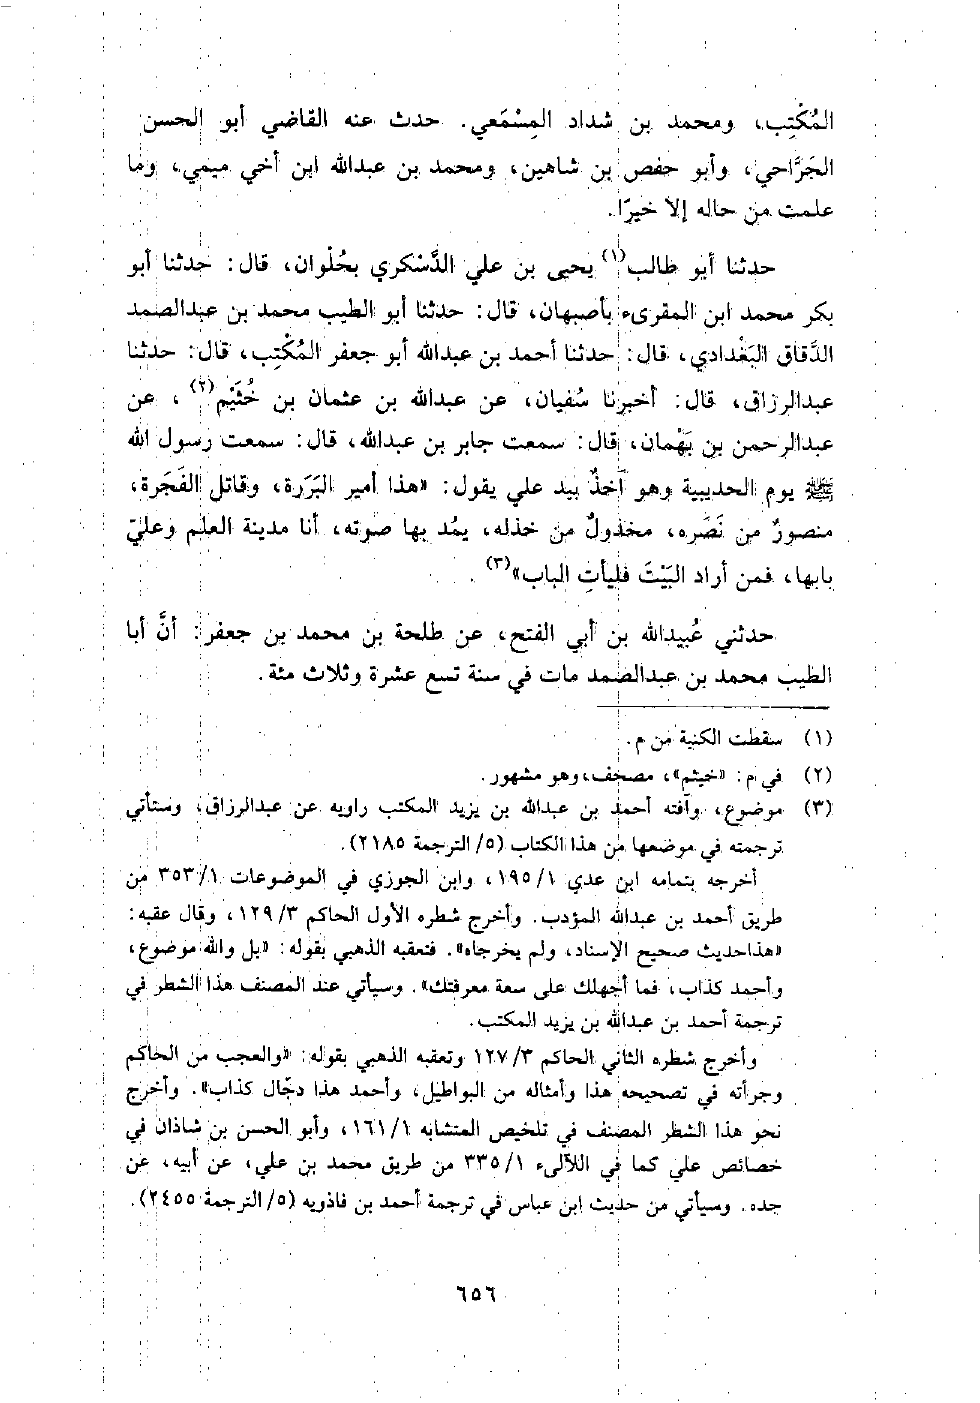 المُكْتِب، ومحمد بن شداد المِسْمَعي. حدث عنه القاضي أبو الحسن
الجَرَّاحي، وأبو حفص بن شاهين، ومحمد بن عبدالله ابن أخي ميمي، وما
علمت من حاله إلا خيرًا.
حدثنا أبو طالب(١) يحيى بن علي الدَّسْكري بحُلْوان، قال: حدثنا أبو
بكر محمد ابن المقرىء بأصبهان، قال: حدثنا أبو الطيب محمد بن عبدالصمد
الدَّقاق البَغْدادي، قال: حدثنا أحمد بن عبدالله أبو جعفر المُكْتِب، قال: حدثنا
عبدالرزاق، قال: أخبرنا سُفيان، عن عبدالله بن عثمان بن خُثَيْم(٢)، عن
عبدالرحمن بن بَهْمان، قال: سمعت جابر بن عبدالله، قال: سمعت رسول الله
ﷺ يوم الحديبية وهو آخذٌ بيد علي يقول: «هذا أمير البَرَرة، وقاتل الفَجَرة،
منصورٌ من نَصَره، مخذولٌ من خذله، يمُد بها صوته، أنا مدينة العلم وعليّ
بابها، فمن أراد البَيْتَ فليأتِ الباب»(٣).
حدثني عُبيدالله بن أبي الفتح، عن طلحة بن محمد بن جعفر: أنَّ أبا
الطيب محمد بن عبدالصمد مات في سنة تسع عشرة وثلاث مئة.
(١) سقطت الكنية من م.
(٢) في م: «خيثم»، مصحف، وهو مشهور.
(٣) موضوع، وآفته أحمد بن عبدالله بن يزيد المكتب راويه عن عبدالرزاق، وستأتي
ترجمته في موضعها من هذا الكتاب (٥/ الترجمة ٢١٨٥).
أخرجه بتمامه ابن عدي ١/ ١٩٥، وابن الجوزي في الموضوعات ١/ ٣٥٣ من
طريق أحمد بن عبدالله المؤدب. وأخرج شطره الأول الحاكم ٣/ ١٢٩، وقال عقبه:
«هذا حديث صحيح الإسناد، ولم يخرجاه». فتعقبه الذهبي بقوله: «بل والله موضوع،
وأحمد كذاب، فما أجهلك على سعة معرفتك». وسيأتي عند المصنف هذا الشطر في
ترجمة أحمد بن عبدالله بن يزيد المكتب.
وأخرج شطره الثاني الحاكم ٣/ ١٢٧ وتعقبه الذهبي بقوله: «والعجب من الحاكم
وجرأته في تصحيحه هذا وأمثاله من البواطيل، وأحمد هذا دجّال كذاب». وأخرج
نحو هذا الشطر المصنف في تلخيص المتشابه ١/ ١٦١، وأبو الحسن بن شاذان في
خصائص علي كما في اللآلىء ١/ ٣٣٥ من طريق محمد بن علي، عن أبيه، عن
جده. وسيأتي من حديث ابن عباس في ترجمة أحمد بن فاذويه (٥/ الترجمة ٢٤٥٥).
٦٥٦